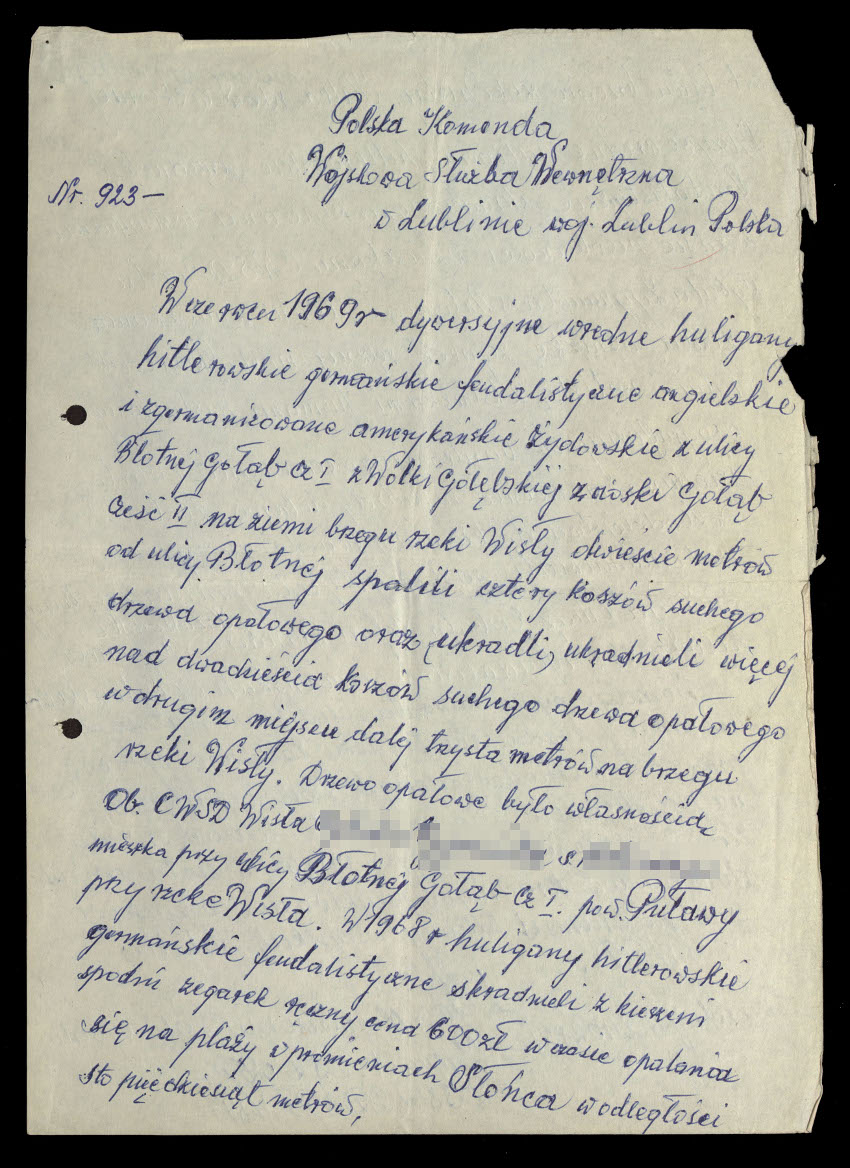 Polska Komenda
Wojskowa Służba Wewnętrzna
Nr. 923 —
w Lublinie woj. Lublin Polska
W czerwcu 1969 r dywersyjne wredne huligany
hitlerowskie germańskie feudalistyczne angielskie
i zgermanizowane amerykańskie żydowskie z ulicy
Błotnej Gołąb cz I z Wólki Gołębskiej z wioski Gołąb
cześć II na ziemi brzegu rzeki Wisły dwieście metrów
od ulicy Błotnej spalili cztery koszów suchego
drzewa opałowego oraz (ukradli) ukradnieli więcej
nad dwadzieścia koszów suchego drzewa opałowego
w drugim miejscu dalej trzysta metrów na brzegu
rzeki Wisły. Drzewo opałowe było własnością
Ob. CWSD Wisła s.
mieszka przy ulicy Błotnej Gołąb cz I. pow. Puławy
przy rzece Wisła. W 1968 r huligany hitlerowskie
germańskie feudalistyczne skradnieli z kieszeni
spodni zegarek ręczny cena 600 zł w czasie opalania
się na plaży w promieniach Słońca w odległości
sto pięćdziesiąt metrów,